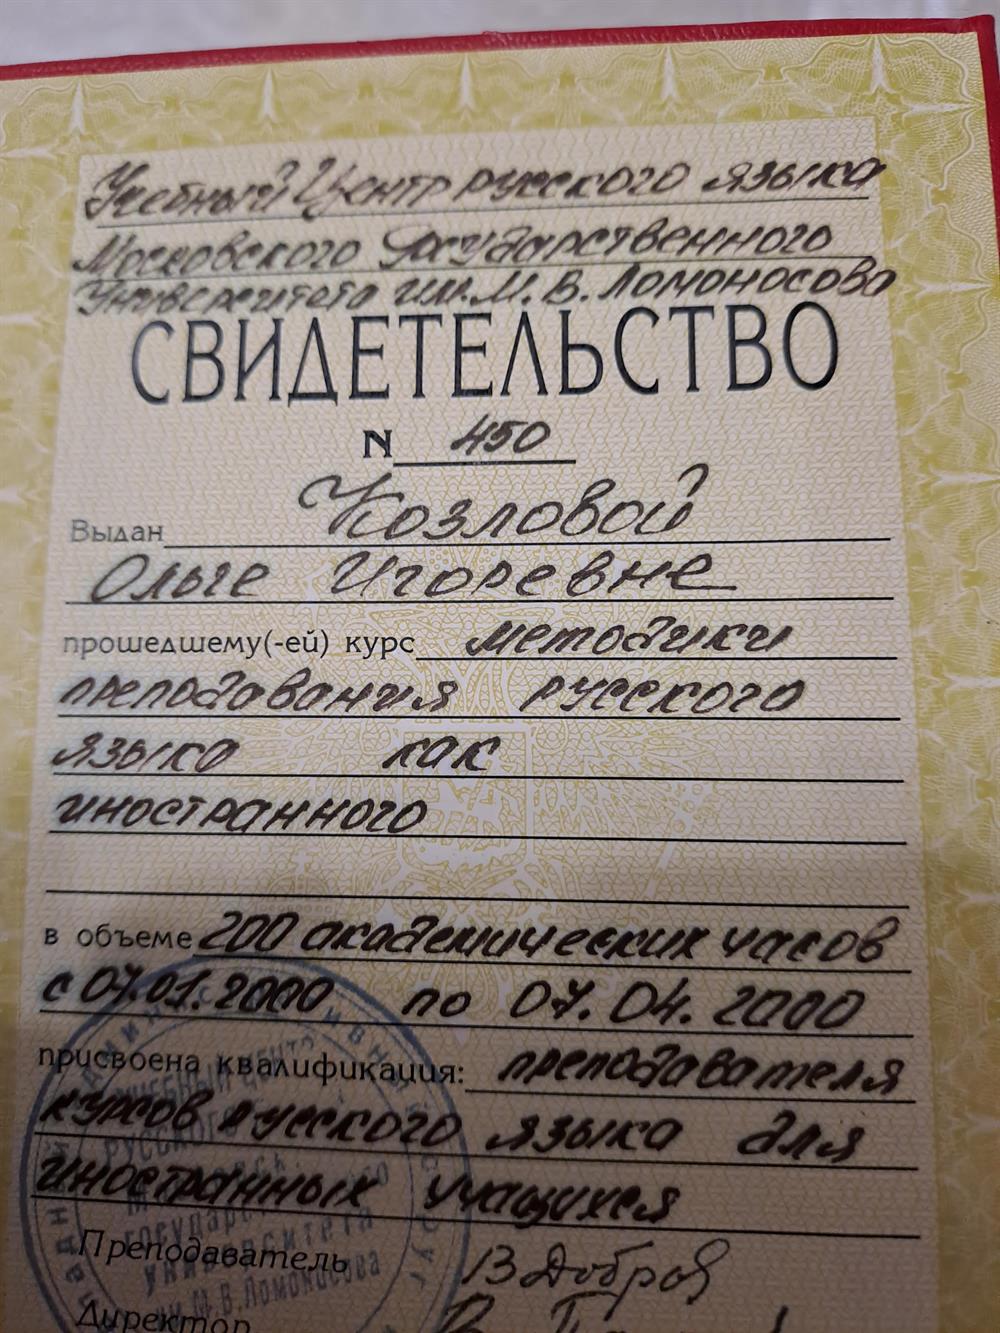 Учебный Центр русского языка
Московского Государственного
Университета им. М. В. Ломоносова
СВИДЕТЕЛЬСТВО
N 450
Выдан Козловой
Ольге Игоревне
прошедшему(-ей) курс методики
преподавания русского
языка как
иностранного
в объеме 200 академических часов
с 07.01.2000 по 07.04.2000
присвоена квалификация: преподавателя
курсов русского языка для
иностранных учащихся
Преподаватель В Добров
Директор
УЧЕБНЫЙ ЦЕНТР
РУССКОГО
ГОСУДАР
УНИВЕРСИТЕТА
им. М.В.Ломоносова